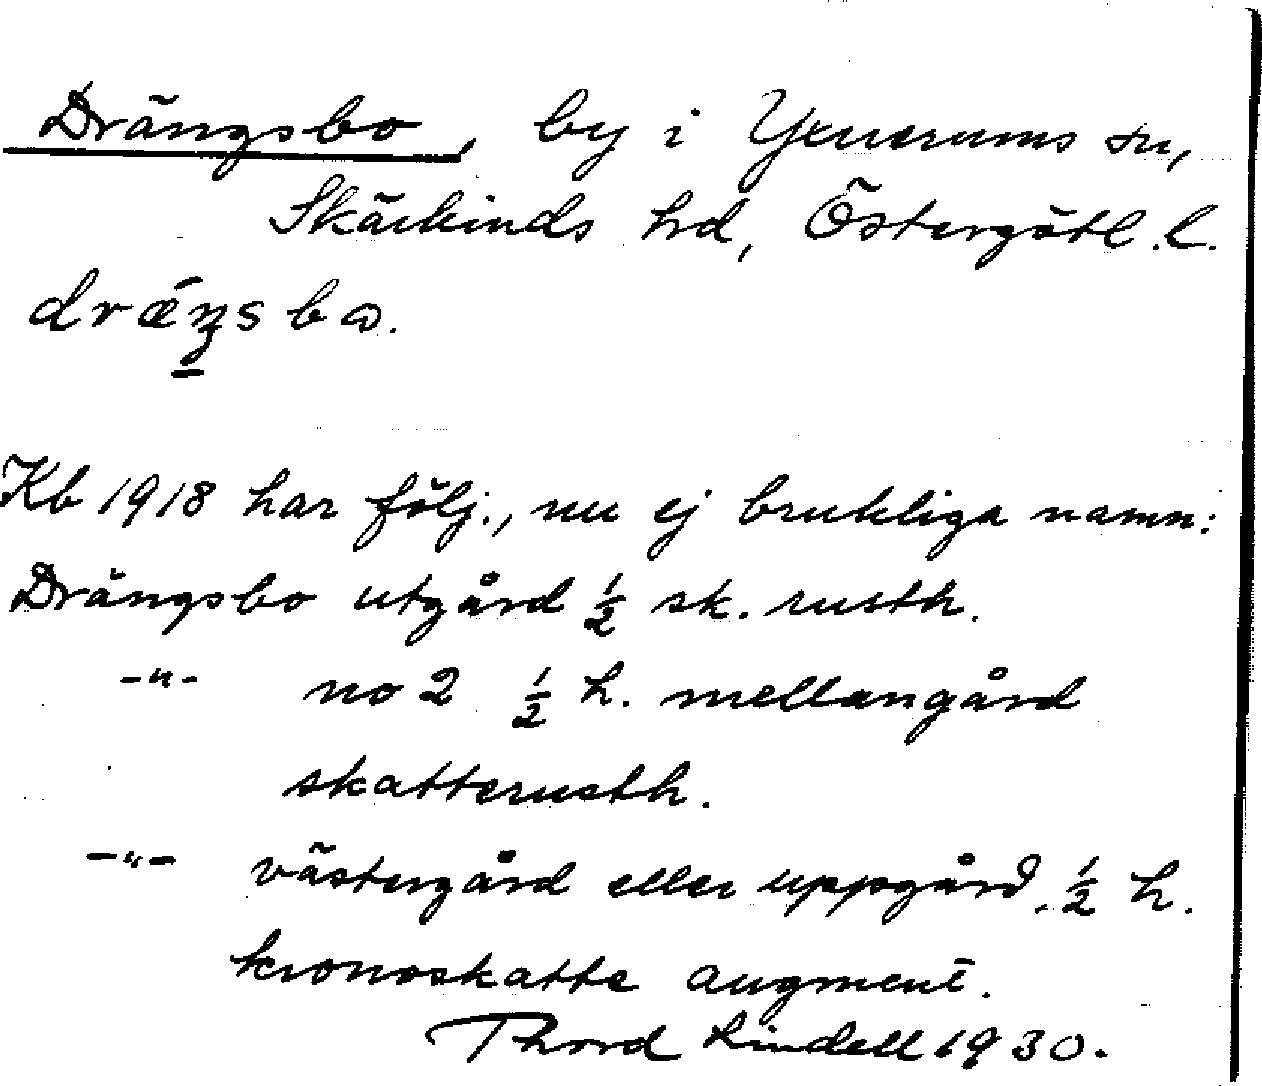 Drängsbo, by i Yxnerums sn,
Skärkinds hd, Östergötl. l.
Kb 1918 har följ., nu ej brukliga namn:
Drängsbo utgård ½ sk. rusth.
-"- no 2 ½ h. mellangård
skatterusth.
-"- västergård eller uppgård. ½ h.
kronoskatte augment.
Thord Lindell 1930.